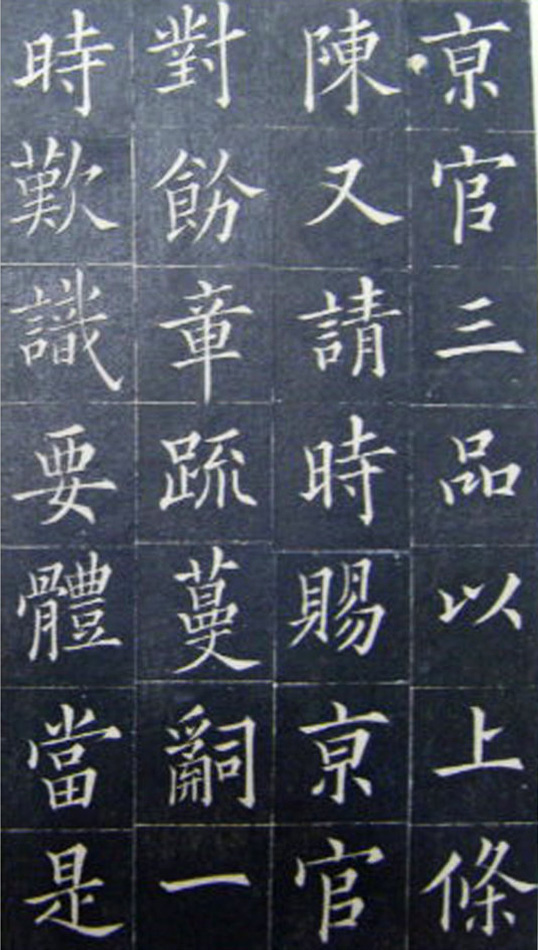 亰官三品以上條
陳又請時賜亰官
對飭章疏蔓辭一
時歎識要體當是